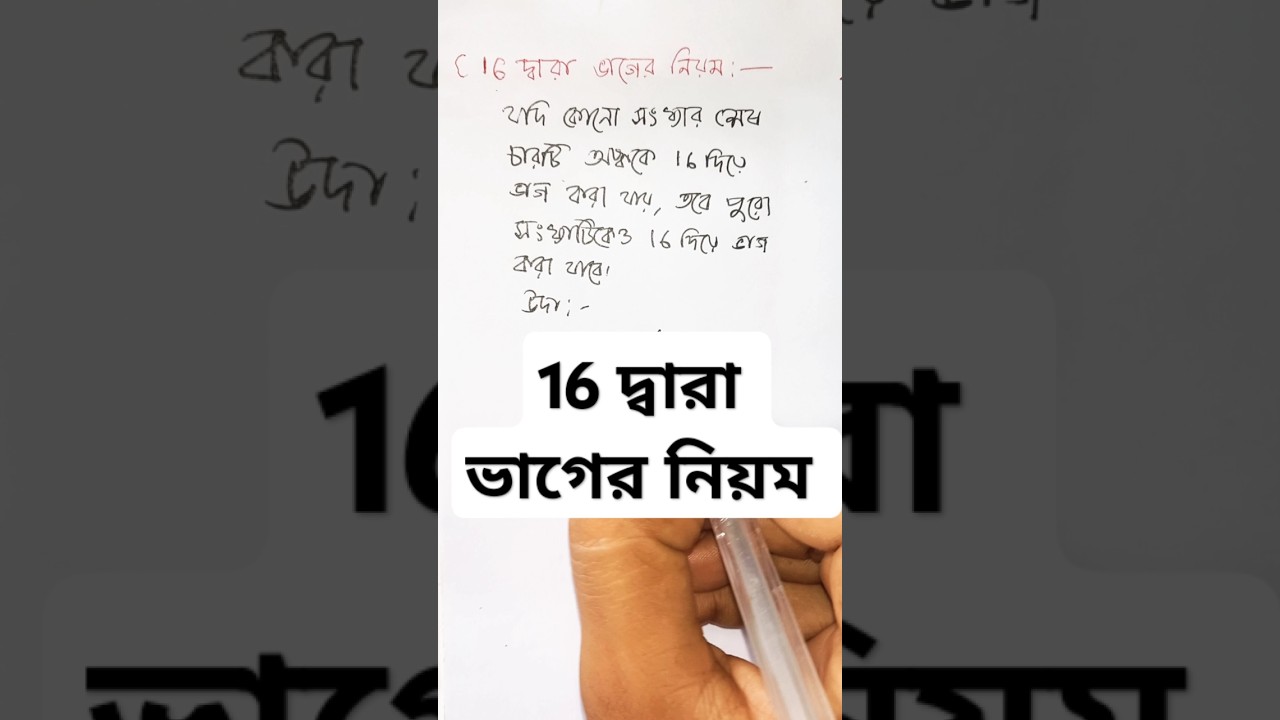 16 দ্বারা ভাগের নিয়ম:—
যদি কোনো সংখ্যার শেষ
চারটি অঙ্ককে 16 দিয়ে
ভাগ করা যায়, তবে পুরো
সংখ্যাটিকেও 16 দিয়ে ভাগ
করা যাবে।
উদা:-
16 দ্বারা
ভাগের নিয়ম